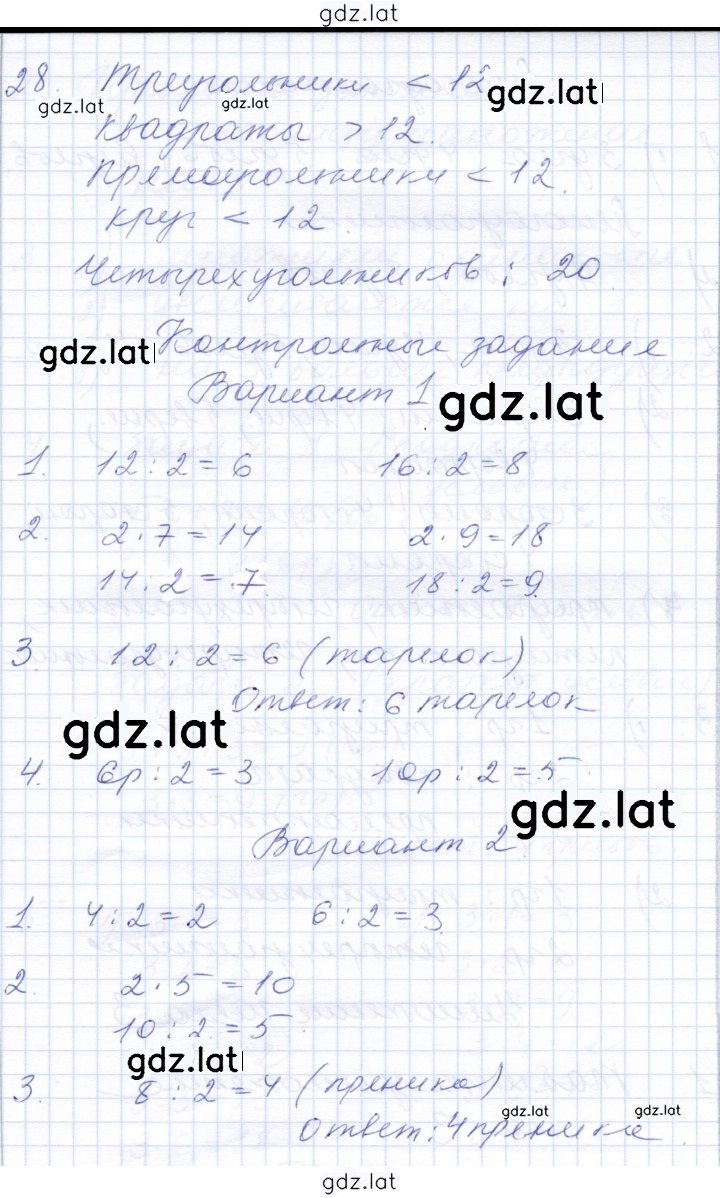 gdz.lat
28. Треугольники < 12
gdz.lat gdz.lat gdz.lat
квадраты > 12.
Прямоугольники < 12.
круг < 12.
Четырехугольников: 20
gdz.lat Контрольные задание
Вариант 1 gdz.lat
1. 12 : 2 = 6 16 : 2 = 8
2. 2 · 7 = 14 2 · 9 = 18
14 : 2 = 7. 18 : 2 = 9.
3. 12 : 2 = 6 (тарелок)
Ответ: 6 тарелок
gdz.lat
4. 6р : 2 = 3 10р : 2 = 5.
gdz.lat
Вариант 2.
1. 4 : 2 = 2 6 : 2 = 3.
2. 2 · 5 = 10
10 : 2 = 5.
gdz.lat
3. 8 : 2 = 4 (пряника)
gdz.lat gdz.lat
Ответ: 4 пряника.
gdz.lat